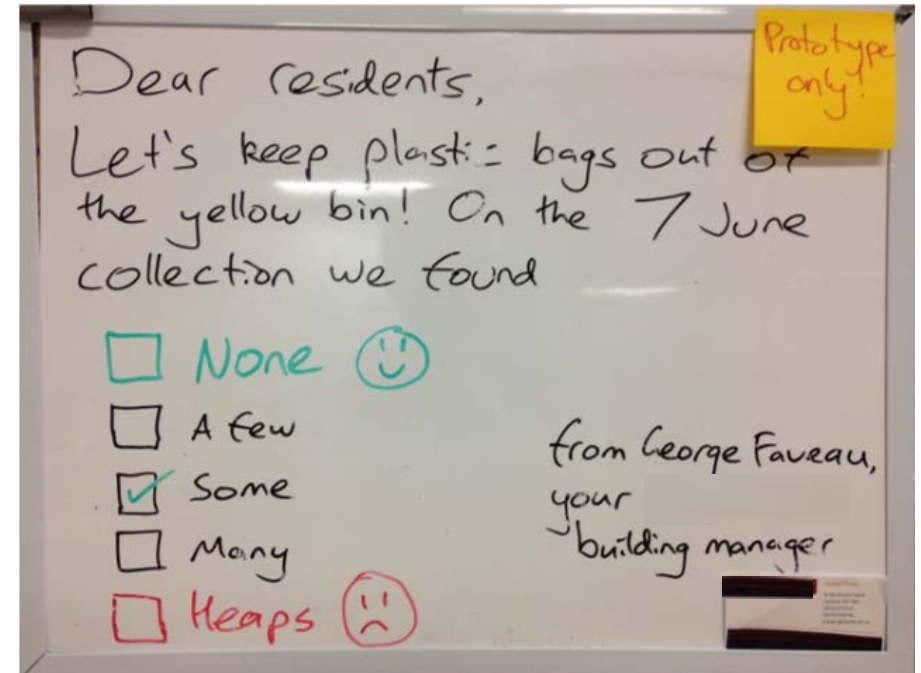 Prototype
only!
Dear residents,
Let's keep plastic bags out of
the yellow bin! On the 7 June
collection we found
None
A few
Some
Many
Heaps
from George Faveau,
your
building manager